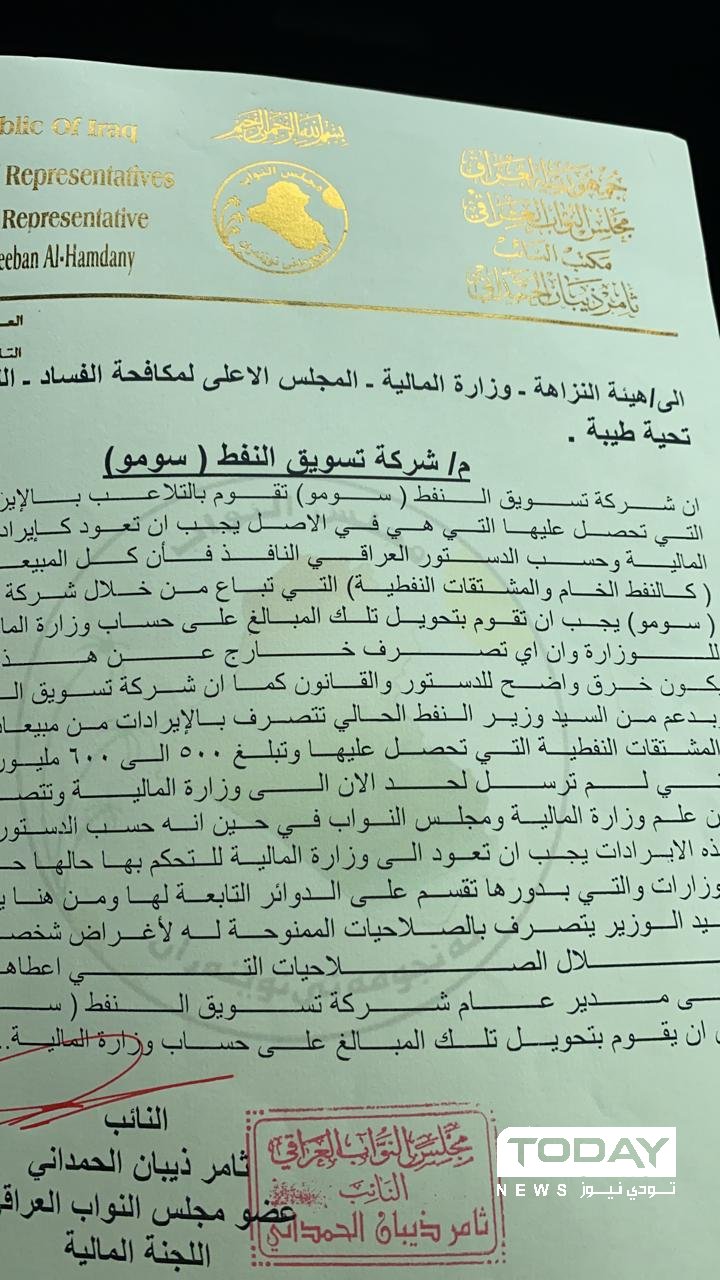 بسم الله الرحمن الرحيم
جمهورية العراق
مجلس النواب العراقي
مكتب النائب
ثامر ذيبان الحمداني
blic Of Iraq
Representatives
Representative
eeban Al-Hamdany
مجلس النواب
الى/هيئة النزاهة - وزارة المالية - المجلس الاعلى لمكافحة الفساد -
تحية طيبة .
م/ شركة تسويق النفط ( سومو)
ان شركة تسويق النفط ( سومو) تقوم بالتلاعب
التي تحصل عليها التي هي في الاصل يجب ان تعود
المالية وحسب الدستور العراقي النافذ فأن كل
( كالنفط الخام والمشتقات النفطية) التي تباع من خلال شركة
( سومو) يجب ان تقوم بتحويل تلك المبالغ على حساب وزارة
للوزارة وان اي تصرف خارج عن
يكون خرق واضح للدستور والقانون كما ان شركة تسويق
وبدعم من السيد وزير النفط الحالي تتصرف بالإيرادات من
المشتقات النفطية التي تحصل عليها وتبلغ ٥٠٠ الى ٦٠٠
لم ترسل لحد الان الى وزارة المالية
علم وزارة المالية ومجلس النواب في حين انه حسب الدستور
الايرادات يجب ان تعود الى وزارة المالية للتحكم بها حالها
والتي بدورها تقسم على الدوائر التابعة لها ومن هنا
الوزير يتصرف بالصلاحيات الممنوحة له لأغراض
الصلاحيات التي
مدير عام شركة تسويق النفط (
ان يقوم بتحويل تلك المبالغ على حساب وزارة المالية..
النائب
ثامر ذيبان الحمداني
عضو مجلس النواب
اللجنة المالية
مجلس النواب العراقي
النائب
ثامر ذيبان الحمداني
TODAY
NEWS تودي نيوز